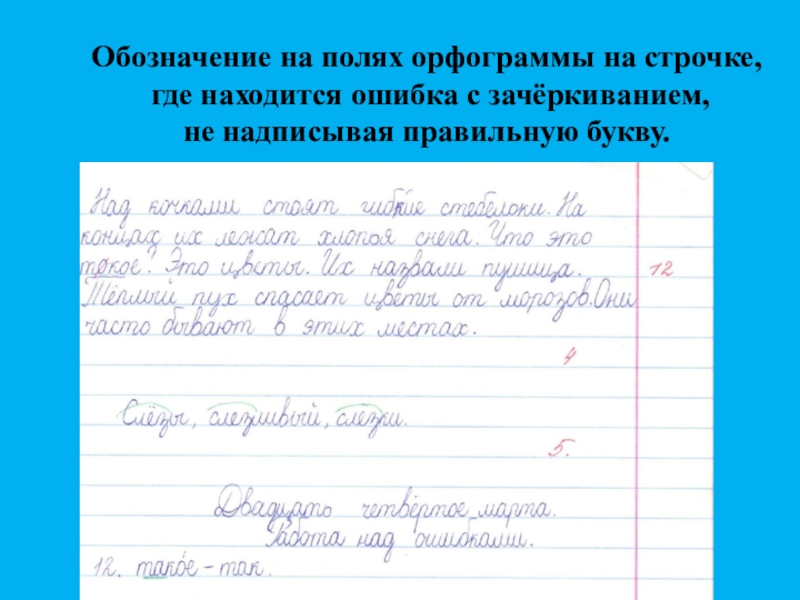 Обозначение на полях орфограммы на строчке,
где находится ошибка с зачёркиванием,
не надписывая правильную букву.
Над кочками стоят гибкие стебелоки. На
концах их лежат хлопоя снега. Что это
токое? Это цветы. Их назвали пушица.
12
Тёплый пух спасает цветы от морозов. Они
часто бывают в этих местах.
4
Слёзы, слезливый, слёзки.
5.
Двадцато четвёртое марта.
Работа над ошибками.
12. такое – так.